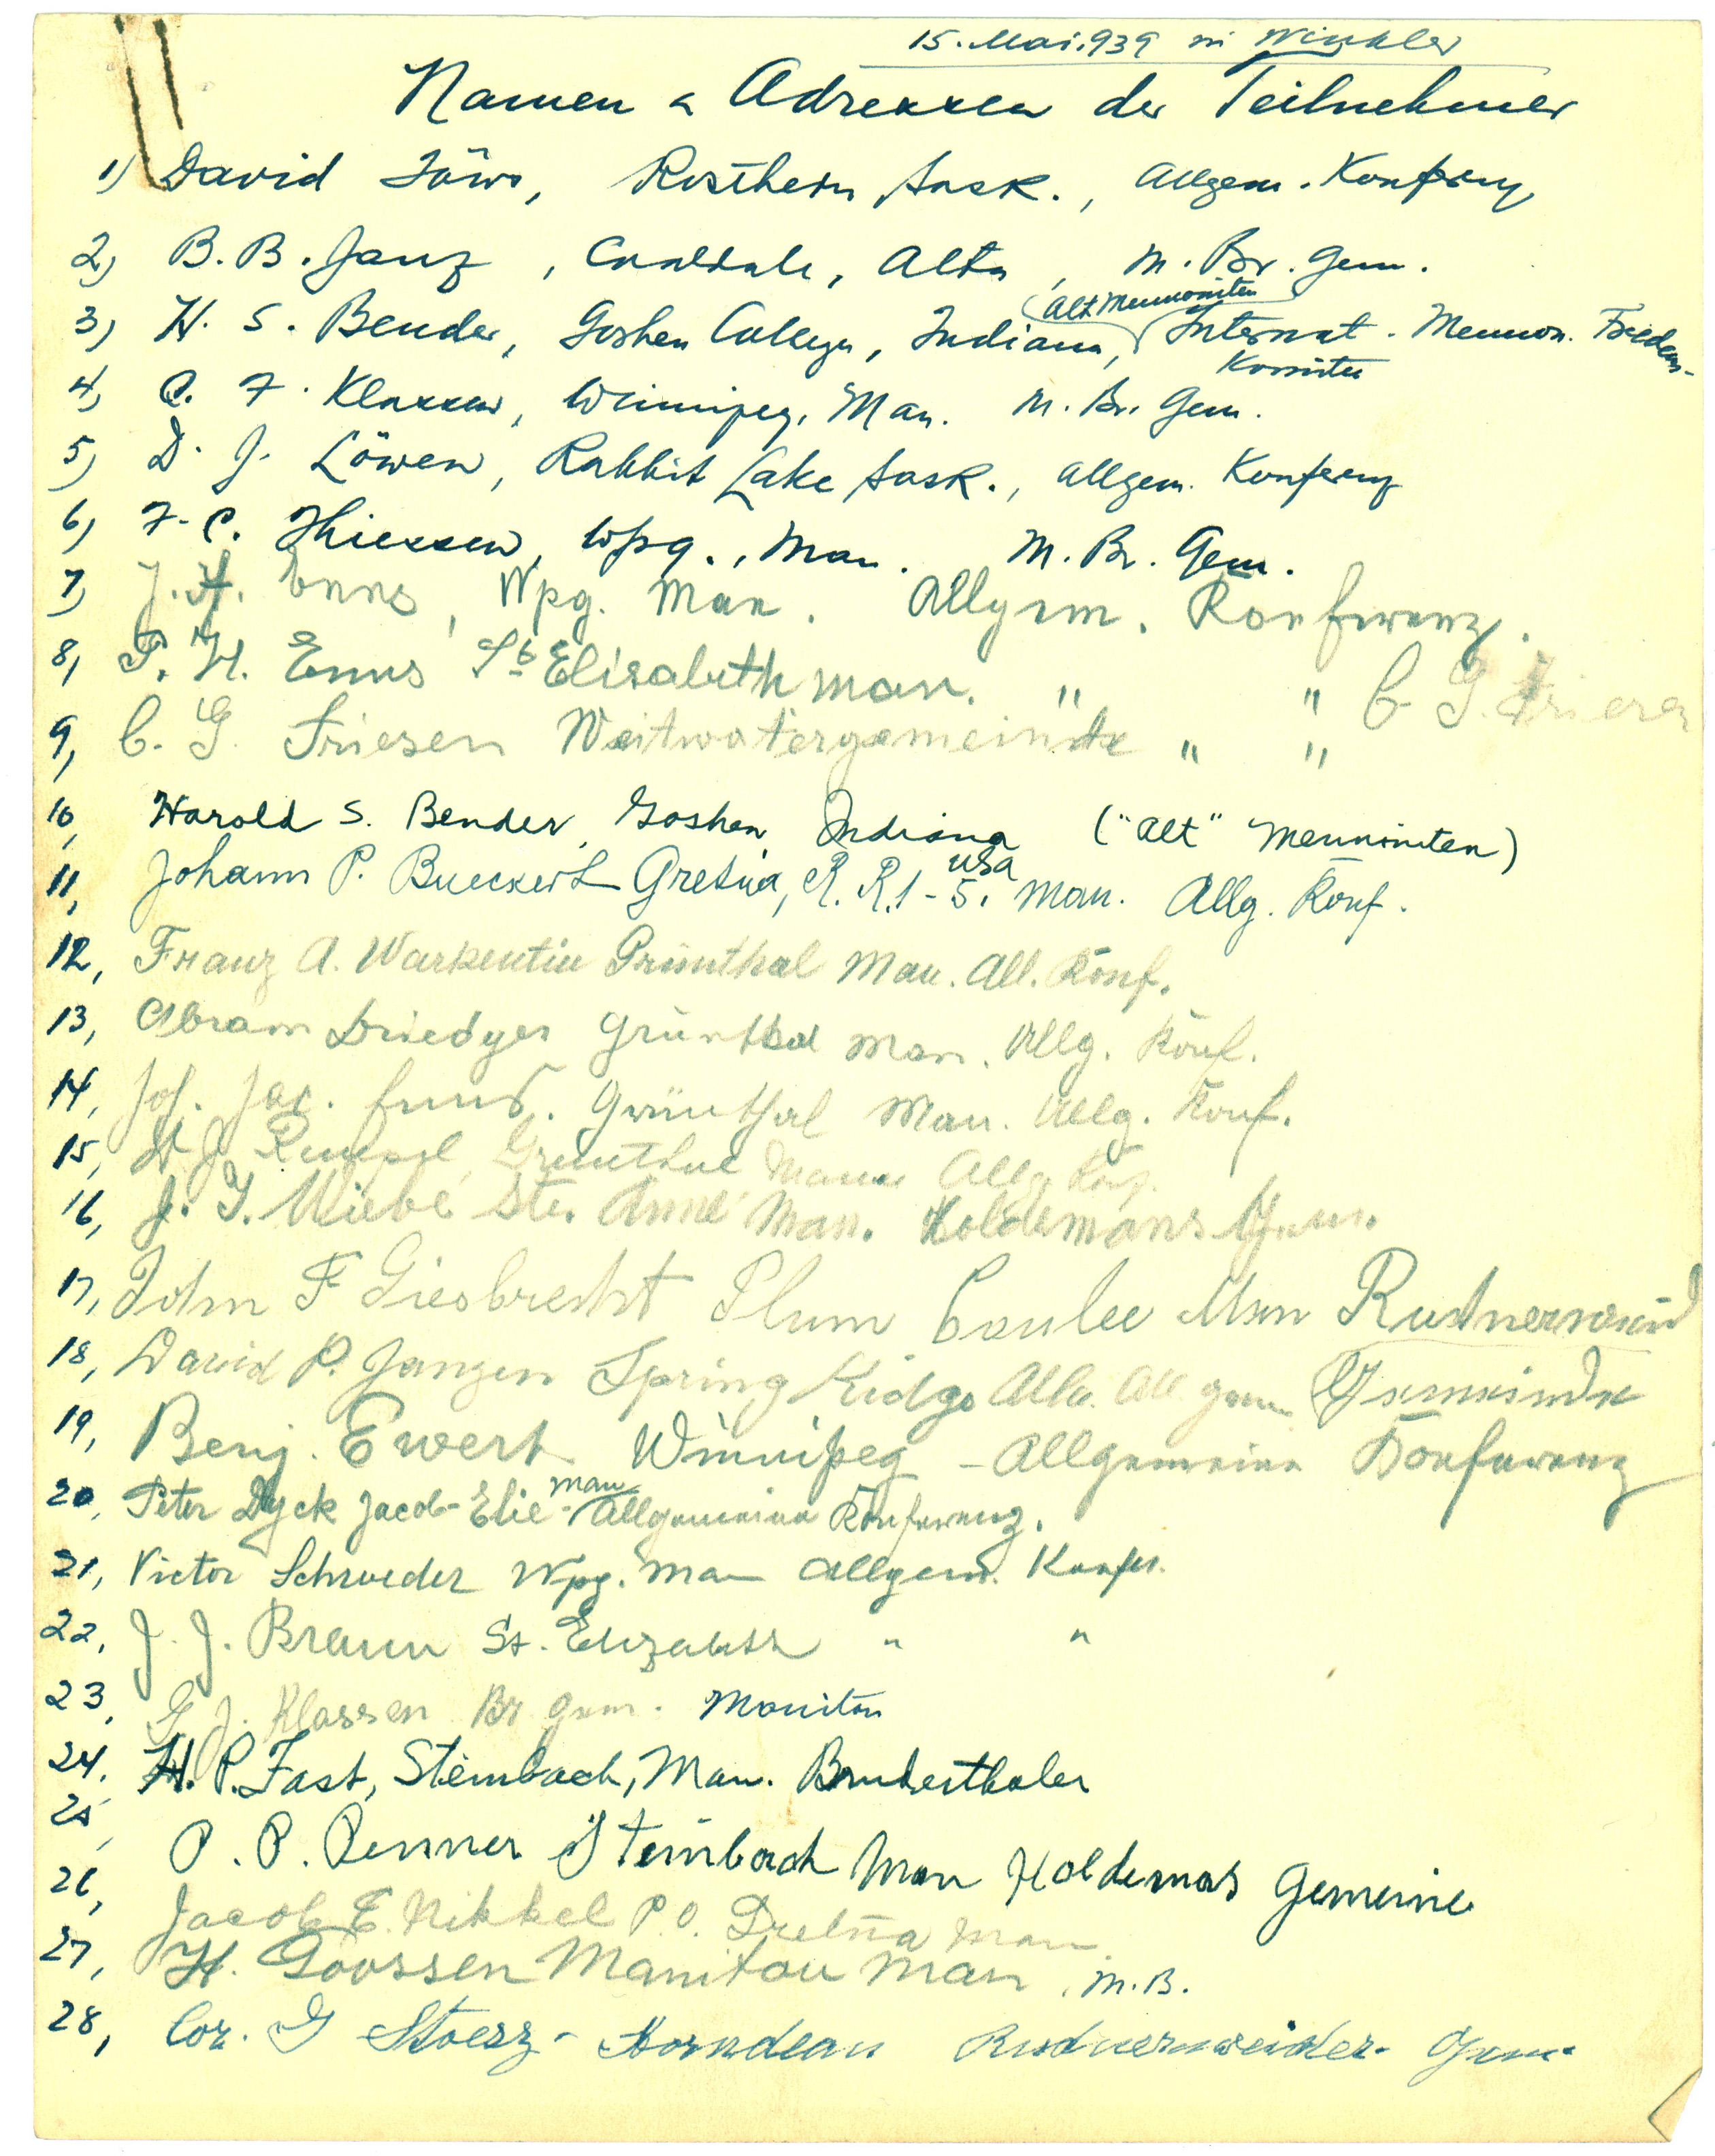 15. Mai 1939 in Winkler
Namen u Adressen der Teilnehmer
1) David Töws, Rosthern Sask., Allgem. Konferenz
2) B. B. Janz, Coaldale, Alta, M. Br. Gem.
(Alt Mennoniten
3) H. S. Bender, Goshen College, Indiana, Internat. Mennon. Friedens-
Komitee
4) C. F. Klassen, Winnipeg, Man. M. Br. Gem.
5) D. J. Löwen, Rabbit Lake Sask., Allgem. Konferenz
6) F. C. Thiessen, Wpg., Man. M. Br. Gem.
7) J. H. Enns, Wpg. Man. Allgem. Konferenz.
8, P. H. Enns St Elisabeth Man. " " C. G. Friesen
9, C. G. Friesen Weitwatergemeinde " "
10, Harold S. Bender, Goshen, Indiana ("Alt" Mennoniten)
USA
11, Johann P. Bueckert Gretna, R. R. 1 - 5. Man. Allg. Konf.
12, Franz A. Warkentin Grünthal Man. All. Konf.
13, Abram Driedger Grünthal Man. Allg. Konf.
14, Joh. Jac. Enns. Grünthal Man. Allg. Konf.
15, Grunthal Mann Allg. Konf.
16, J. T. Wiebe Ste. Anne Man. Holdemans Gem.
17, John F Giesbrecht Plum Coulee Man Rudnerweid
18, David P. Janzen Spring Ridge Alta. All gem Gemeinde
19, Benj. Ewert Winnipeg - Allgemeine Konferenz
Man
20, Peter Dyck Jacob - Elie - Allgemeine Konferenz.
21, Victor Schroeder Wpg. Man Allgem. Konfer.
22, J. J. Braun St. Elizabeth " "
23, G. J. Klassen Br gem. Manitou
24, H. P. Fast, Steinbach, Man. Bruderthaler
25, P. P. Penner Steinbach Man Holdemas Gemeine
26, Jacob E. Nikkel P.O. Gretna Man.
27, H. Goossen Manitou Man, M. B.
28, Cor. G Stoesz - Horndean Rudnerweider - Gem.